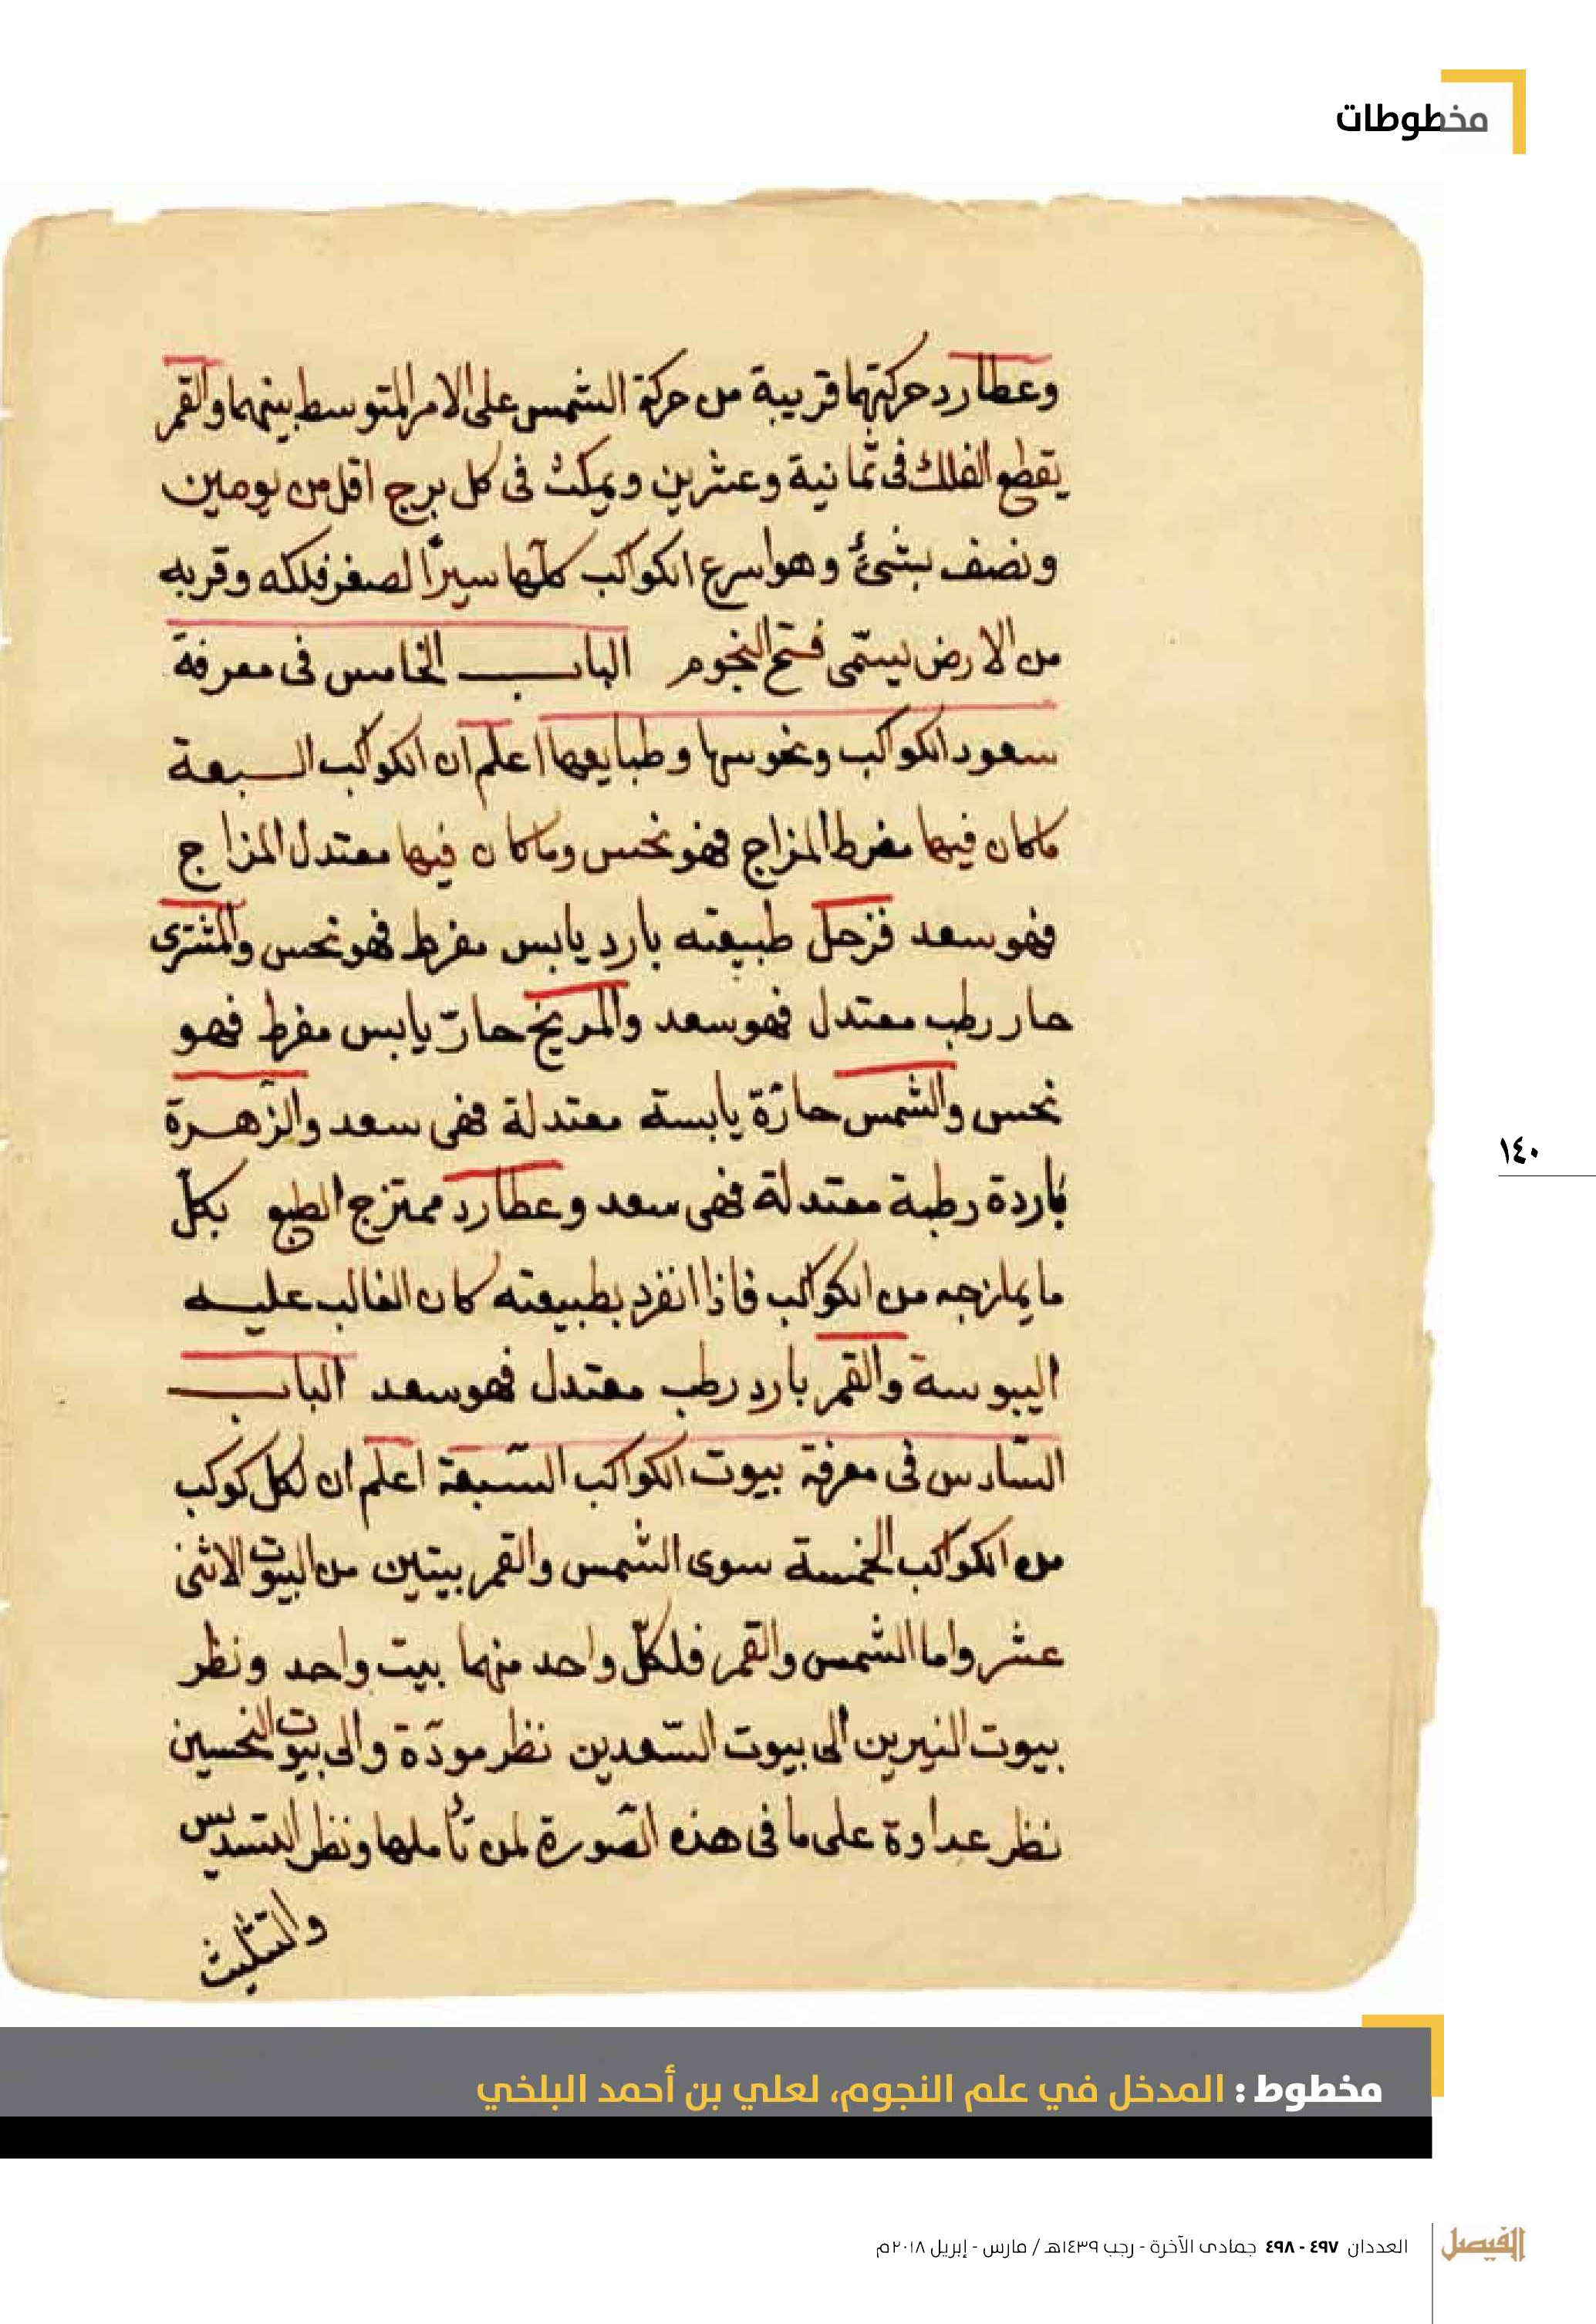 مخطوطات
وعطارد حركتهما قريبة من حركة الشمس على الامر المتوسط بينهما والقمر
يقطع الفلك فى ثمانية وعشرين ويمكث فى كل برج اقل من يومين
ونصف بشئ وهو اسرع الكواكب كلها سيرًا لصغر فلكه وقربه
من الارض ليسمّى فتح النجوم الباب الخامس فى معرفة
سعود الكواكب ونحوسها وطبايعها اعلم ان الكواكب السبعة
ما كان فيها مفرط المزاج فهو نحس وما كان فيها معتدل المزاج
فهو سعد فزحل طبيعته بارد يابس مفرط فهو نحس والمشترى
حار رطب معتدل فهو سعد والمريخ حارّ يابس مفرط فهو
نحس والشمس حارّة يابسة معتدلة فهى سعد والزّهرة
باردة رطبة معتدلة فهى سعد وعطارد ممتزج الطبع بكلّ
ما يمازجه من الكواكب فاذا انفرد بطبيعته كان الغالب عليه
اليبوسة والقمر بارد رطب معتدل فهو سعد الباب
السّادس فى معرفة بيوت الكواكب السّبعة اعلم ان لكل كوكب
من الكواكب الخمسة سوى الشمس والقمر بيتين من البيوت الاثنى
عشر واما الشمس والقمر فلكلّ واحد منهما بيت واحد ونظر
بيوت النيرين الى بيوت السّعدين نظر مودّة والى بيوت النحسين
نظر عداوة على ما فى هذه الصّورة لمن تأملها ونظر التسديس
والتثليث
١٤٠
مخطوط : المدخل في علم النجوم، لعلي بن أحمد البلخي
الفيصل
العددان ٤٩٧ - ٤٩٨ جمادى الآخرة - رجب ١٤٣٩هـ / مارس - إبريل ٢٠١٨م